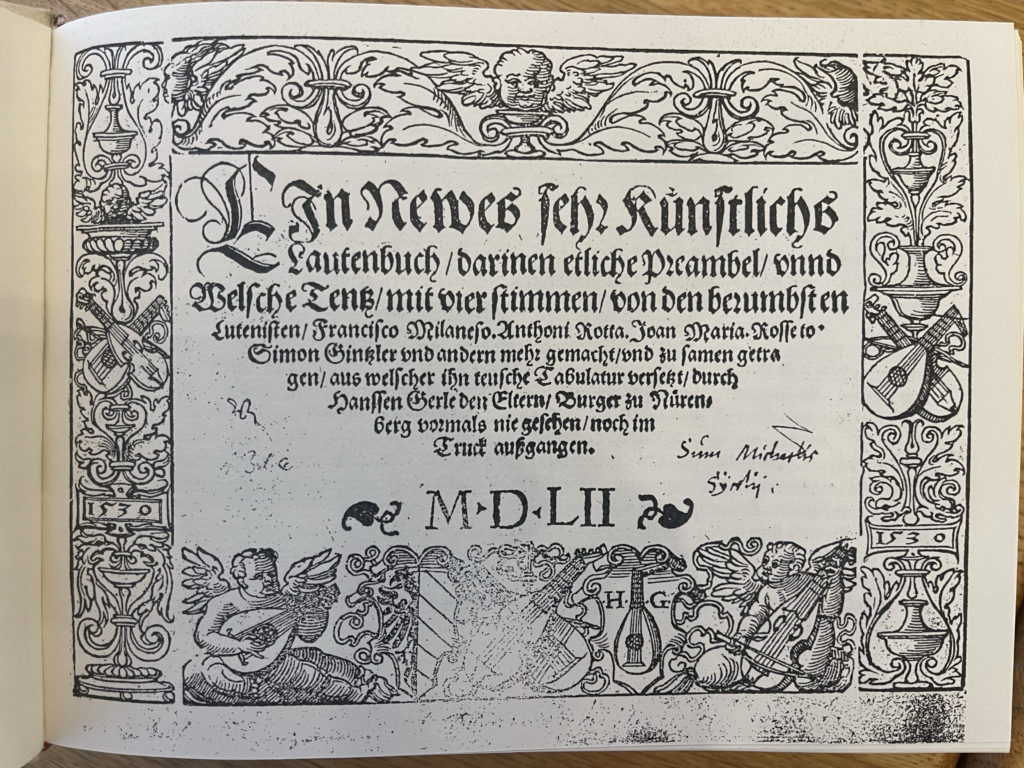 EIn Newes sehr Künstlichs
Lautenbuch / darinen etliche Preambel / vnnd
Welsche Tentz / mit vier stimmen / von den berumbsten
Lutenisten / Francisco Milaneso. Anthoni Rotta. Joan Maria. Rosseto.
Simon Gintzler vnd andern mehr gemacht / vnd zu samen getra
gen / aus welscher ihn teusche Tabulatur versetzt / durch
Hanssen Gerle den Eltern / Burger zu Nüren-
berg vormals nie gesehen / noch im
Truck außgangen.
Sum
M·D·LII
1530
1530
H·G·